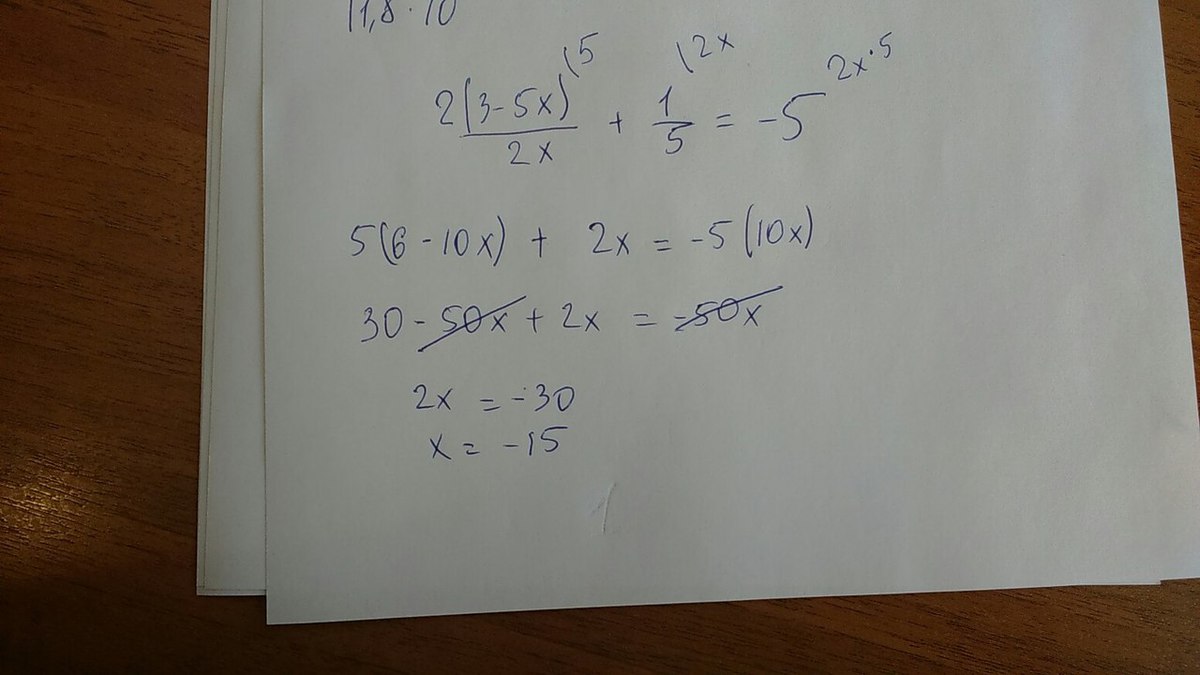 11,8 · 10
2(3-5x)⁽⁵/2x + 1⁽²ˣ/5 = -5 2x·5
5(6-10x) + 2x = -5(10x)
30 - 50x + 2x = -50x
2x = -30
x = -15